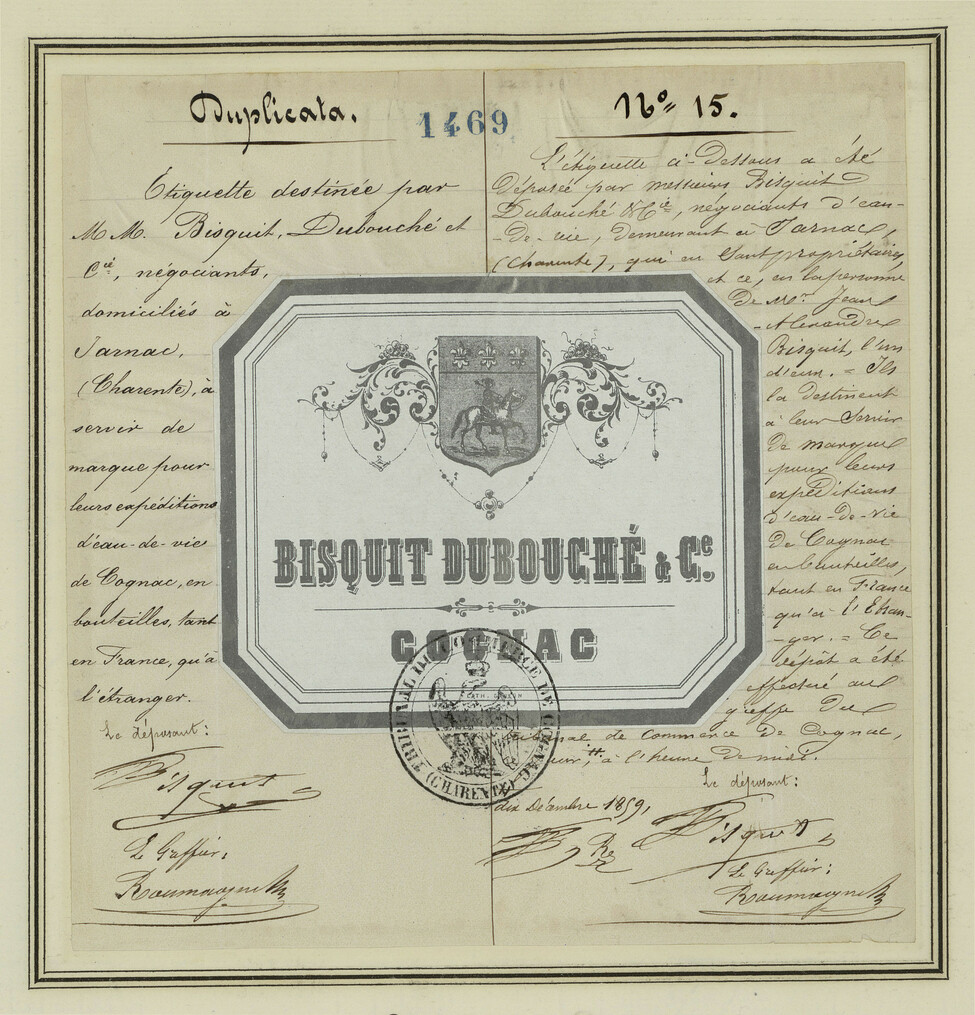 Duplicata.
1469
Nº 15.
Etiquette destinée par
M M. Bisquit, Dubouché et
Cie, négociants,
domiciliés à
Jarnac,
(Charente), à
servir de
marque pour
leurs expéditions
d'eau-de-vie
de Cognac, en
bouteilles, tant
en France, qu'à
l'étranger.
Le déposant:
Bisquit
Le Greffier:
L'étiquette ci-Dessous a été
Déposée par messieurs Bisquit
Dubouché & Cie, négociants d'eau-
-De-vie, Demeurant à Jarnac,
(Charente), qui en sont propriétaires,
et ce, en la personne
De Mr. Jean
-Alexandre
Bisquit, l'un
d'eux. = Ils
la Destinent
à leur servir
De marque
pour leurs
expéditions
d'eau-De-vie
De Cognac
en bouteilles,
tant en France
qu'à l'Etran-
-ger. = Ce
dépôt a été
effectué au
greffe Du
Tribunal de Commerce De Cognac,
à l'heure De midi.
dix Décembre 1859,
Le déposant:
Bisquit
Le Greffier:
BISQUIT DUBOUCHÉ & Ce
COGNAC
TRIBUNAL DE COMMERCE DE COGNAC
(CHARENTE)